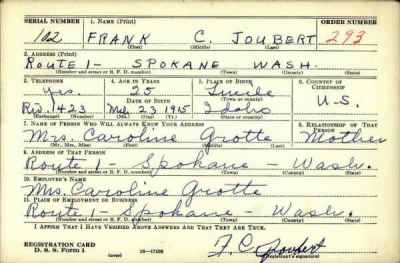 SERIAL NUMBER 1. NAME (Print) ORDER NUMBER
102 FRANK C. JOUBERT 293
(First) (Middle) (Last)
2. ADDRESS (Print)
ROUTE 1 - SPOKANE WASH.
(Number and street or R. F. D. number) (Town) (County) (State)
3. TELEPHONE 4. AGE IN YEARS 5. PLACE OF BIRTH 6. COUNTRY OF CITIZENSHIP
Yes. 25 Lucile
DATE OF BIRTH (Town or county)
Riv. 1423 23 1915 Idaho U.S.
(Exchange) (Number) (Mo.) (Day) (Yr.) (State or country)
7. NAME OF PERSON WHO WILL ALWAYS KNOW YOUR ADDRESS 8. RELATIONSHIP OF THAT PERSON
Mrs. Caroline Grotte Mother
(Mr., Mrs., Miss) (First) (Middle) (Last)
9. ADDRESS OF THAT PERSON
Route 1 - Spokane - Wash.
(Number and street or R. F. D. number) (Town) (County) (State)
10. EMPLOYER'S NAME
Mrs. Caroline Grotte
11. PLACE OF EMPLOYMENT OR BUSINESS
Route 1 - Spokane - Wash.
(Number and street or R. F. D. number) (Town) (County) (State)
I AFFIRM THAT I HAVE VERIFIED ABOVE ANSWERS AND THAT THEY ARE TRUE.
REGISTRATION CARD
D. S. S. Form 1 (over) 16-17105 F. C. Joubert
(Registrant's signature)